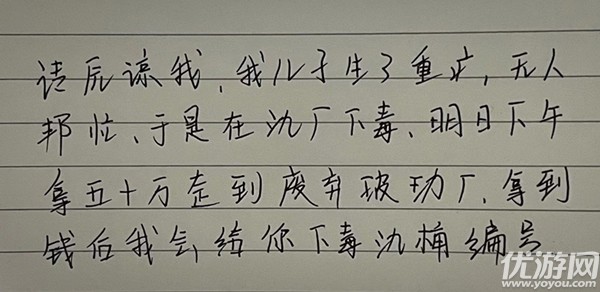 请原谅我,我儿子生了重疒,无人
邦忙、于是在氿厂下毒、明日下午
拿五十万走到废弃玻功厂,拿到
钱后我会给你下毒氿桶编号
优游网
www.yoyou.com